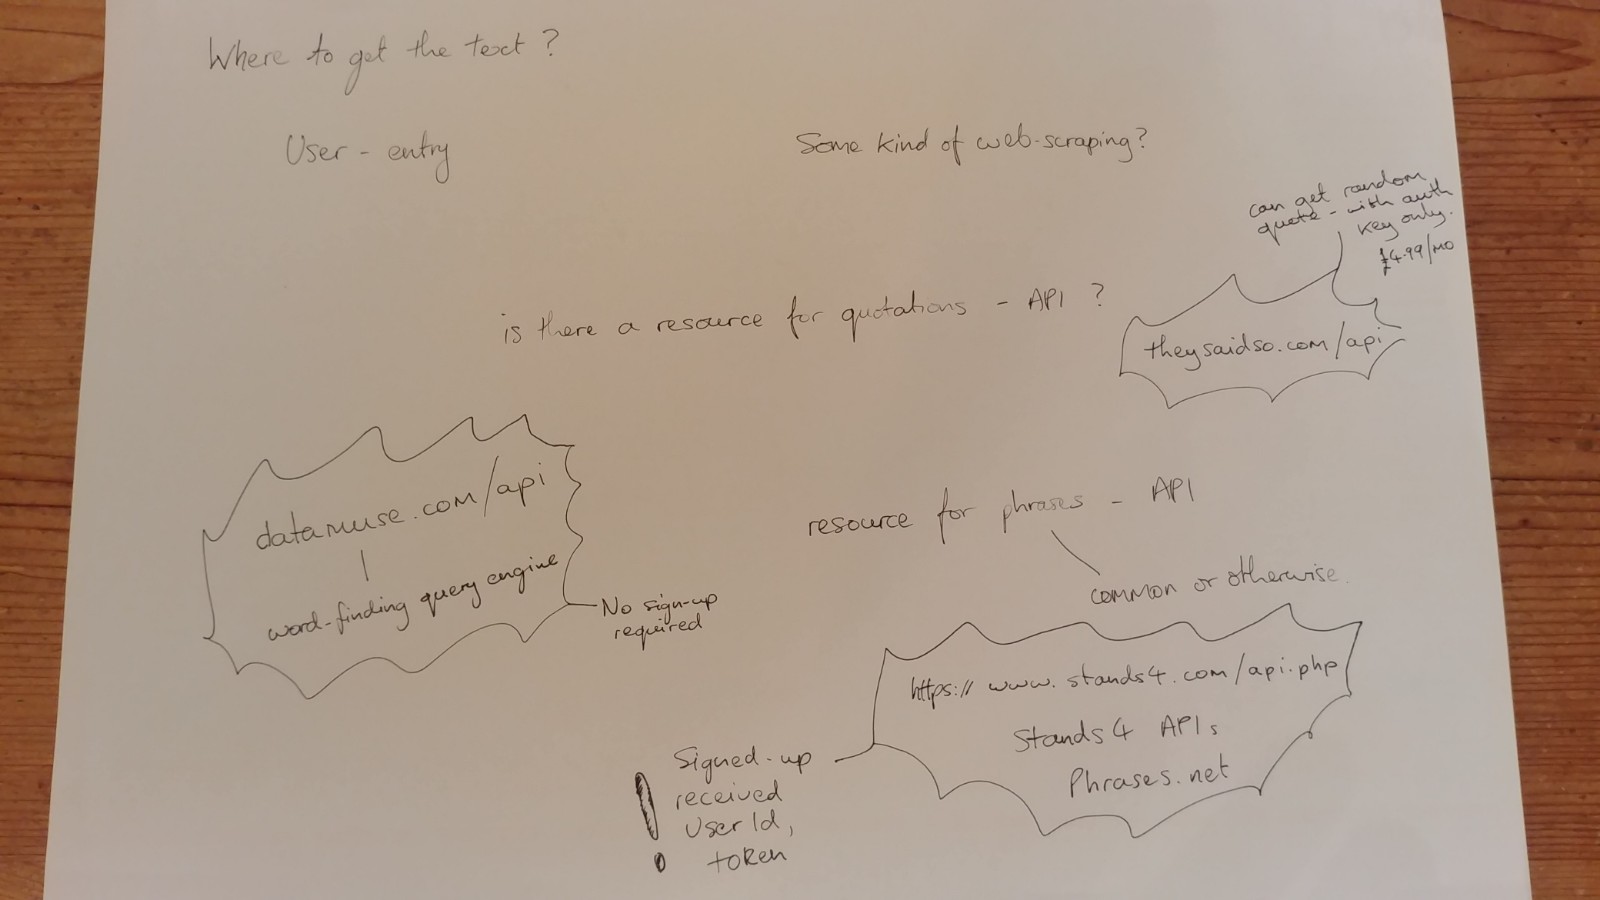 Where to get the text?
User - entry
Some kind of web-scraping?
can get random
quote - with auth
key only.
£4.99/MO
is there a resource for quotations - API ?
theysaidso.com/api
datamuse.com/api
word-finding query engine
No sign-up
required
resource for phrases - API
common or otherwise.
https:// www.stands4.com/api.php
Stands4 APIs
Phrases.net
Signed-up
received
User Id,
token
!